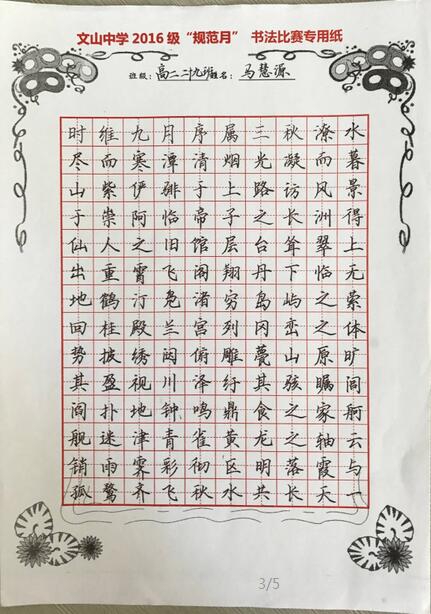 文山中学2016级“规范月” 书法比赛专用纸
班级：高二二十九班姓名：马慧源
时维九月序属三秋潦水
尽而寒潭清烟光凝而暮
山紫俨𬴂于上路访风景
于崇阿临帝子之长洲得
仙人之旧馆层台耸翠上
出重霄飞阁翔丹下临无
地鹤汀凫渚穷岛屿之萦
回桂殿兰宫列冈峦之体
势披绣闼俯雕甍山原旷
其盈视川泽纡其骇瞩闾
阎扑地钟鸣鼎食之家舸
舰迷津青雀黄龙之轴云
销雨霁彩彻区明落霞与
孤鹜齐飞秋水共长天一
3/5